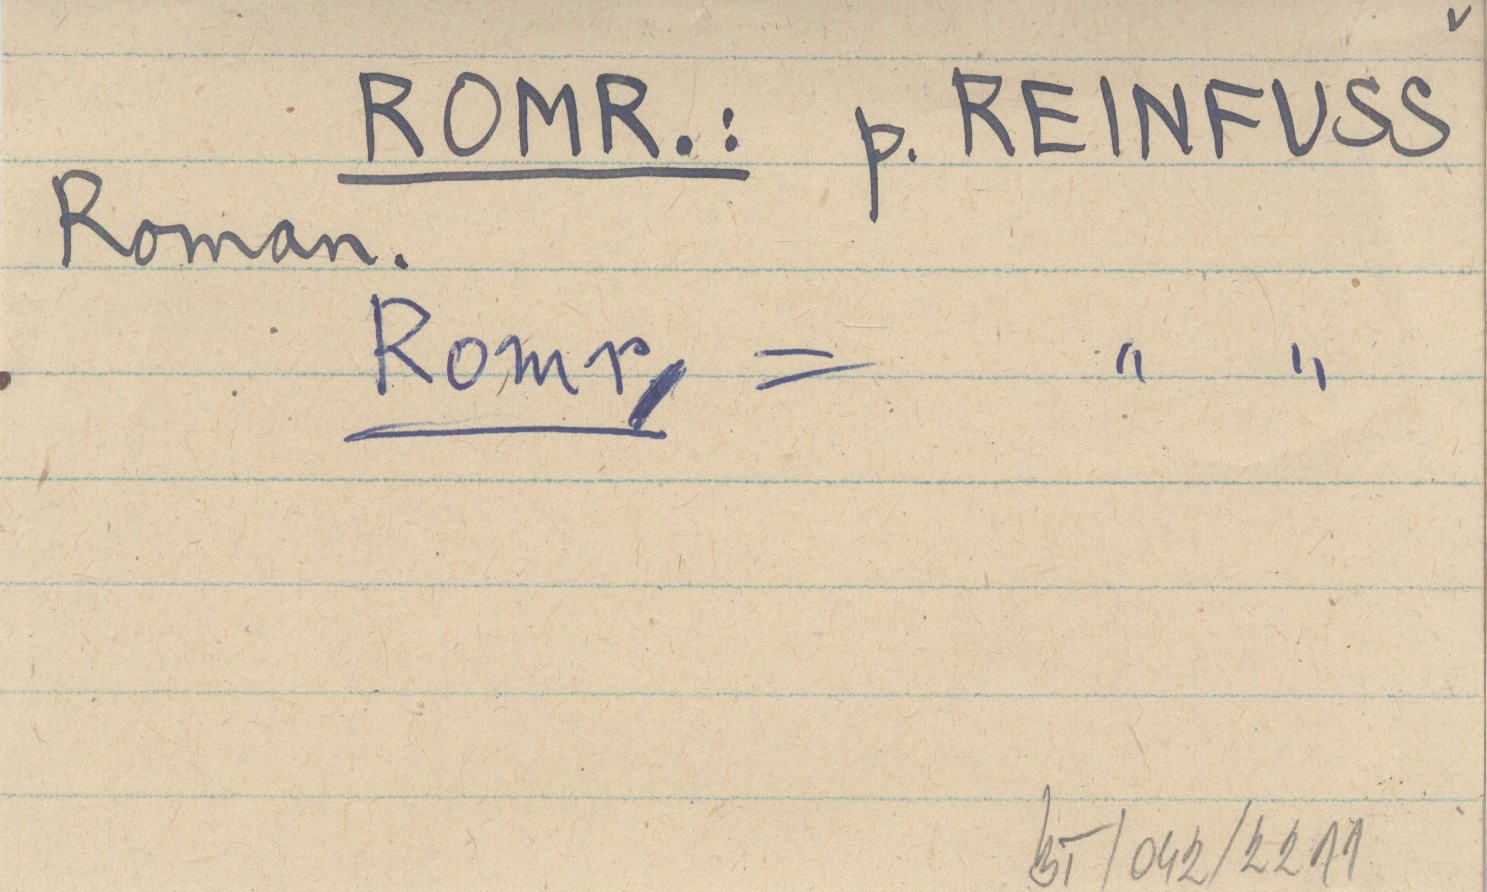 v
ROMR.: p. REINFUSS
Roman.
Romr = " "
BT/042/2211